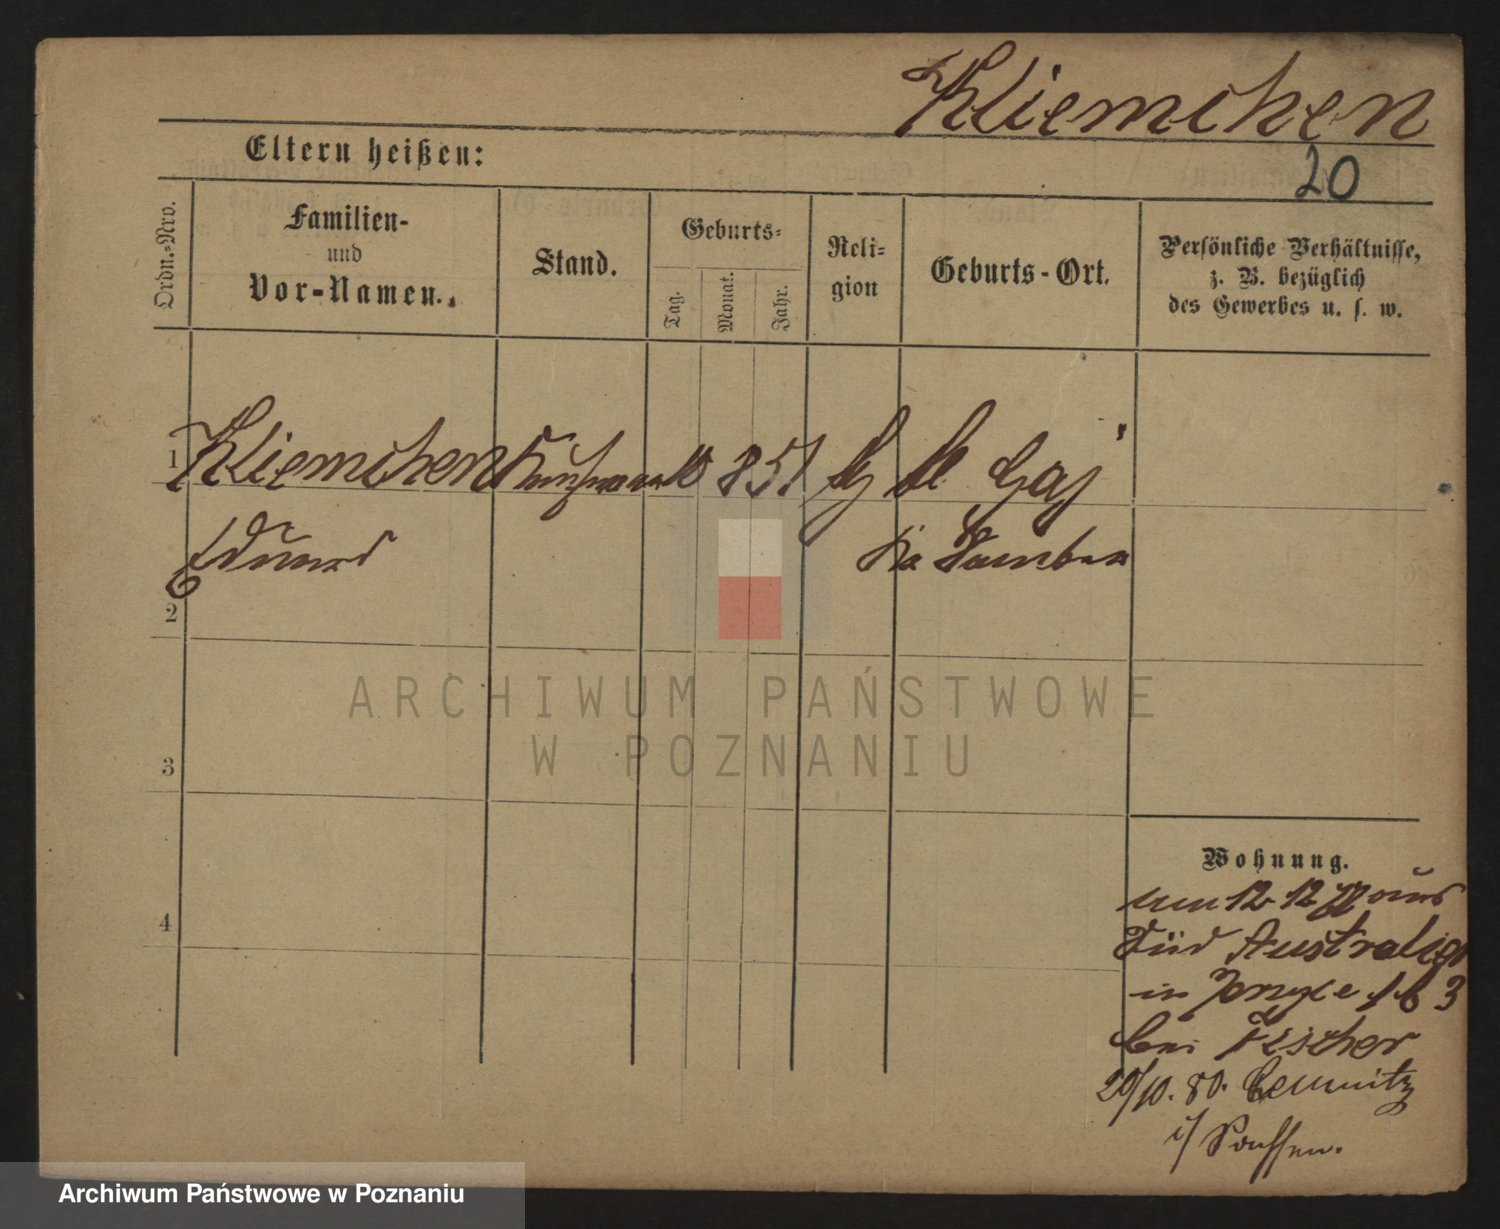 Kliemchen
20
Eltern heißen:
Ordn.-Nro.
Familien-
und
Vor-Namen.
Stand.
Geburts-
Tag.
Monat.
Jahr.
Reli-
gion
Geburts-Ort.
Persönliche Verhältnisse,
z. B. bezüglich
des Gewerbes u. s. w.
1 Kliemchen 851 Gaj
Eduard
2
3
4
ARCHIWUM PAŃSTWOWE
W POZNANIU
Wohnung.
12 12 aus
Süd Australien
in 3
bei Fischer
20/10. 80. Chemnitz
i/ Sachsen.
Archiwum Państwowe w Poznaniu